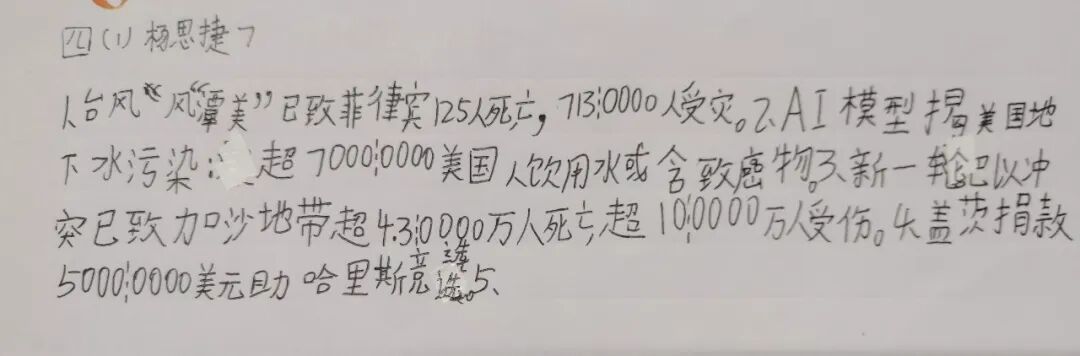 四(1)杨思捷 7
1、台风“风“潭美”已致菲律宾125人死亡，713¦0000人受灾。2、AI模型揭美国地
下水污染：超7000¦0000美国人饮用水或含致癌物。3、新一轮巴以冲
突已致加沙地带超4.3¦0000万人死亡，超10¦0000万人受伤。4、盖茨捐款
5000¦0000美元助哈里斯竞选。5、